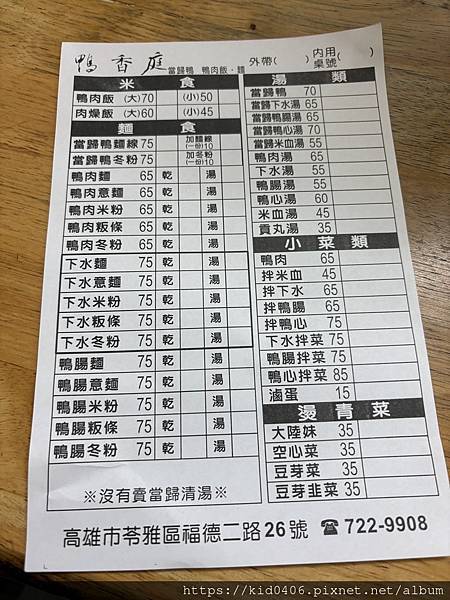 鴨香庭 當歸鴨 鴨肉飯．麵 外帶( ) 內用桌號( )
米食
鴨肉飯 (大)70 (小)50
肉燥飯 (大)60 (小)45
麵食
當歸鴨麵線 75 加麵線(一份)10
當歸鴨冬粉 75 加冬粉(一份)10
鴨肉麵 65 乾 湯
鴨肉意麵 65 乾 湯
鴨肉米粉 65 乾 湯
鴨肉粄條 65 乾 湯
鴨肉冬粉 65 乾 湯
下水麵 75 乾 湯
下水意麵 75 乾 湯
下水米粉 75 乾 湯
下水粄條 75 乾 湯
下水冬粉 75 乾 湯
鴨腸麵 75 乾 湯
鴨腸意麵 75 乾 湯
鴨腸米粉 75 乾 湯
鴨腸粄條 75 乾 湯
鴨腸冬粉 75 乾 湯
※沒有賣當歸清湯※
湯類
當歸鴨 70
當歸下水湯 65
當歸鴨腸湯 65
當歸鴨心湯 70
當歸米血湯 55
鴨肉湯 65
下水湯 55
鴨腸湯 55
鴨心湯 60
米血湯 45
貢丸湯 35
小菜類
鴨肉 65
拌米血 45
拌下水 65
拌鴨腸 65
拌鴨心 75
下水拌菜 75
鴨腸拌菜 75
鴨心拌菜 85
滷蛋 15
燙青菜
大陸妹 35
空心菜 35
豆芽菜 35
豆芽韭菜 35
高雄市苓雅區福德二路26號 ☎722-9908
https://kid0406.pixnet.net/album